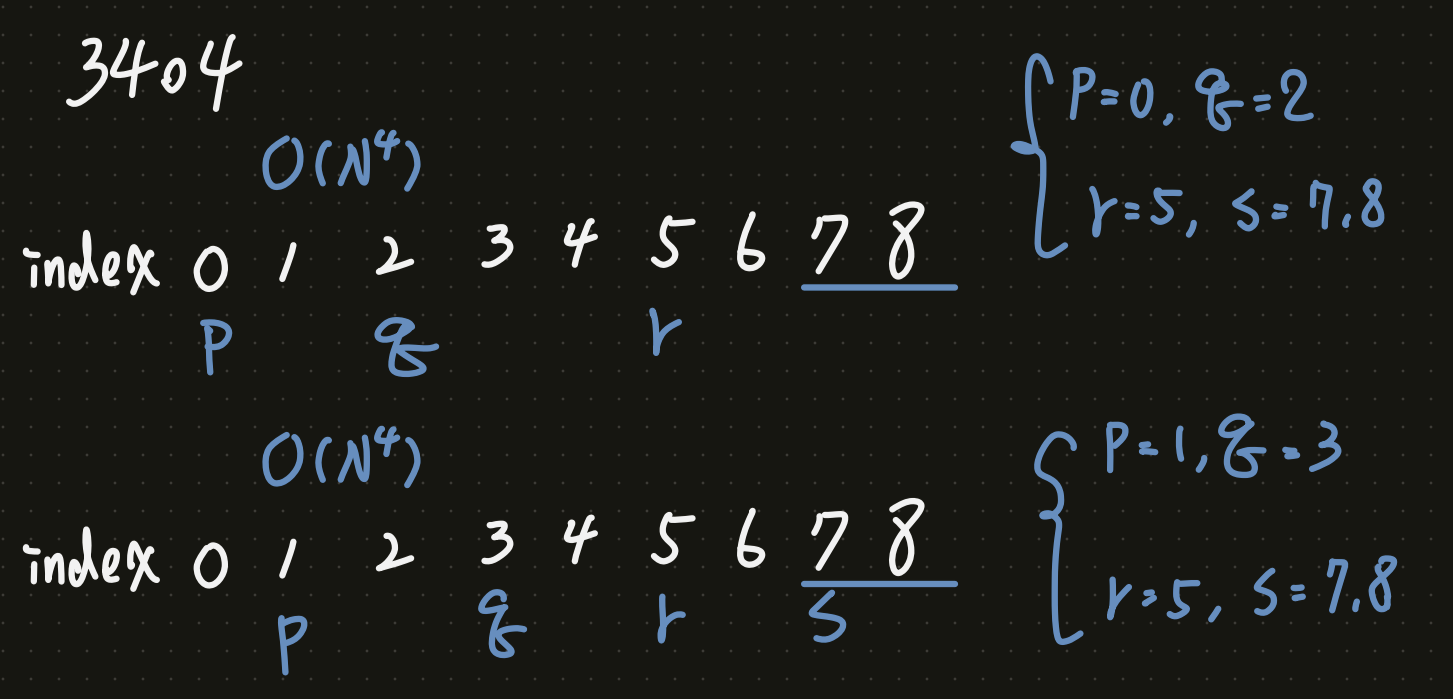 3404
O(N⁴)
index 0 1 2 3 4 5 6 7 8
p q r
{ p=0, q=2
r=5, s=7,8
O(N⁴)
index 0 1 2 3 4 5 6 7 8
p q r s
{ p=1, q=3
r=5, s=7,8